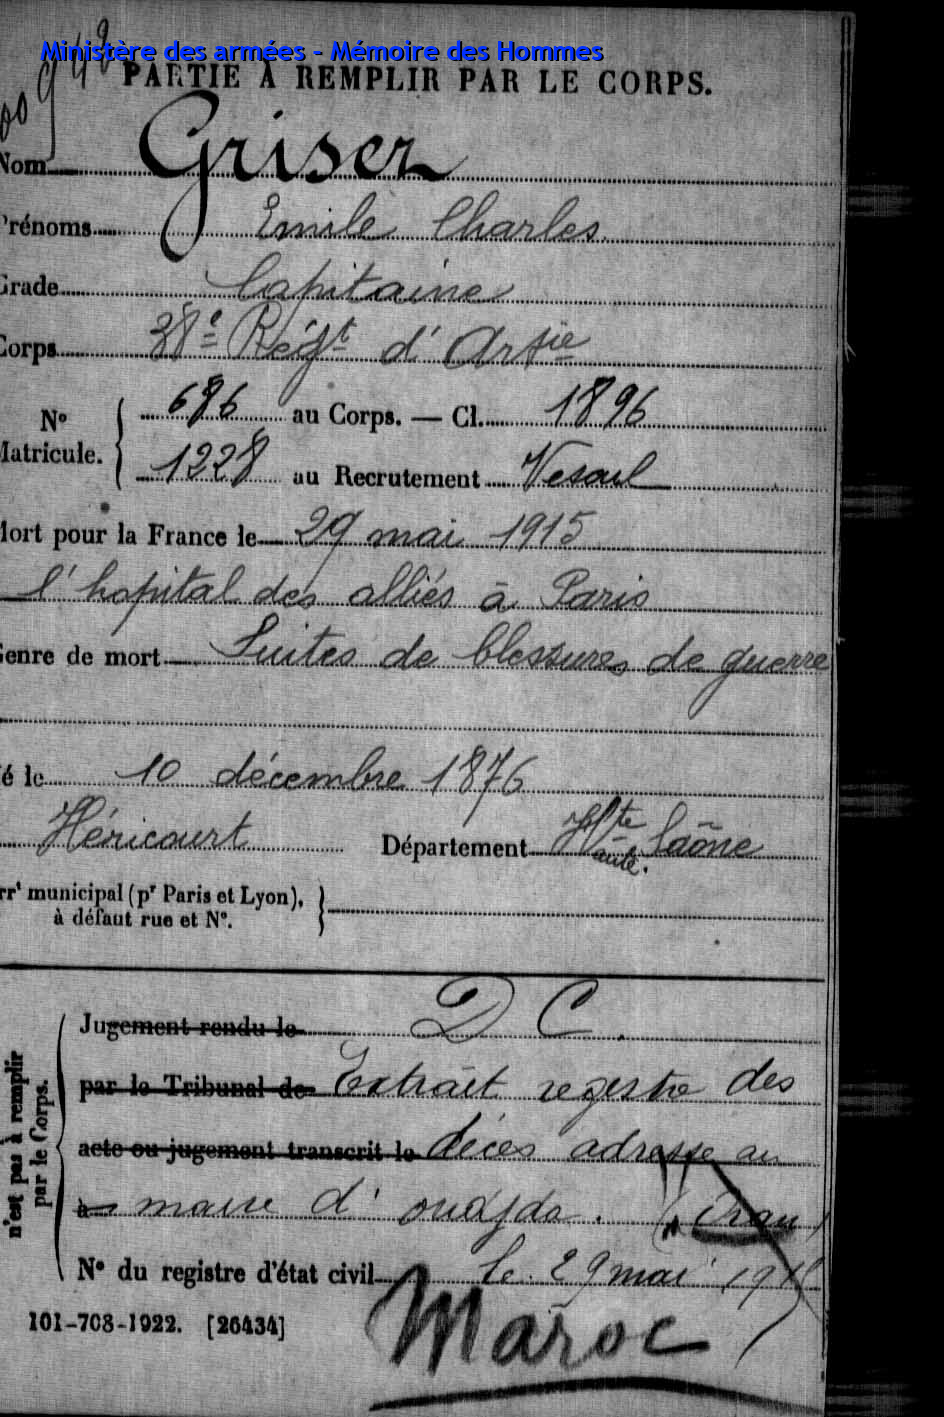 948
Ministère des armées - Mémoire des Hommes
PARTIE À REMPLIR PAR LE CORPS.
Nom Griser
Prénoms Emile Charles
Grade Capitaine
Corps 38e Régt d'Artie
No 686 au Corps. — Cl. 1896
Matricule. 1228 au Recrutement Vesoul
Mort pour la France le 29 mai 1915
l'hopital des alliés à Paris
Genre de mort Suites de blessures de guerre
é le 10 décembre 1876
Héricourt Département Hte Saône
aute.
rrt municipal (pr Paris et Lyon),
à défaut rue et No.
Jugement rendu le D C.
par le Tribunal de Extrait registre des
acte ou jugement transcrit le décès adresse au
à maire d'oudjda. (Oran)
No du registre d'état civil le 29 mai 1915
n'est pas à remplir
par le Corps.
Maroc
101-708-1922. [26434]